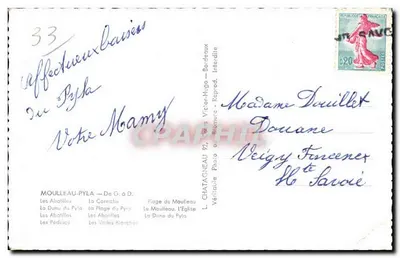 33
Affectueux baisers
du Pyla
Votre Mamy
MOULLEAU-PYLA — De G. à D.
Les Abatilles La Corniche Plage du Moulleau
La Dune du Pyla La Plage du Pyla Le Moulleau, L'Eglise
Les Abatilles Les Abatilles La Dune du Pyla
L. CHATAGNEAU Victor-Hugo - Bordeaux
Véritable Photo Reprod. Interdite
0,20
Madame Douillet
Douane
Veigy Foncenex
Hte Savoie